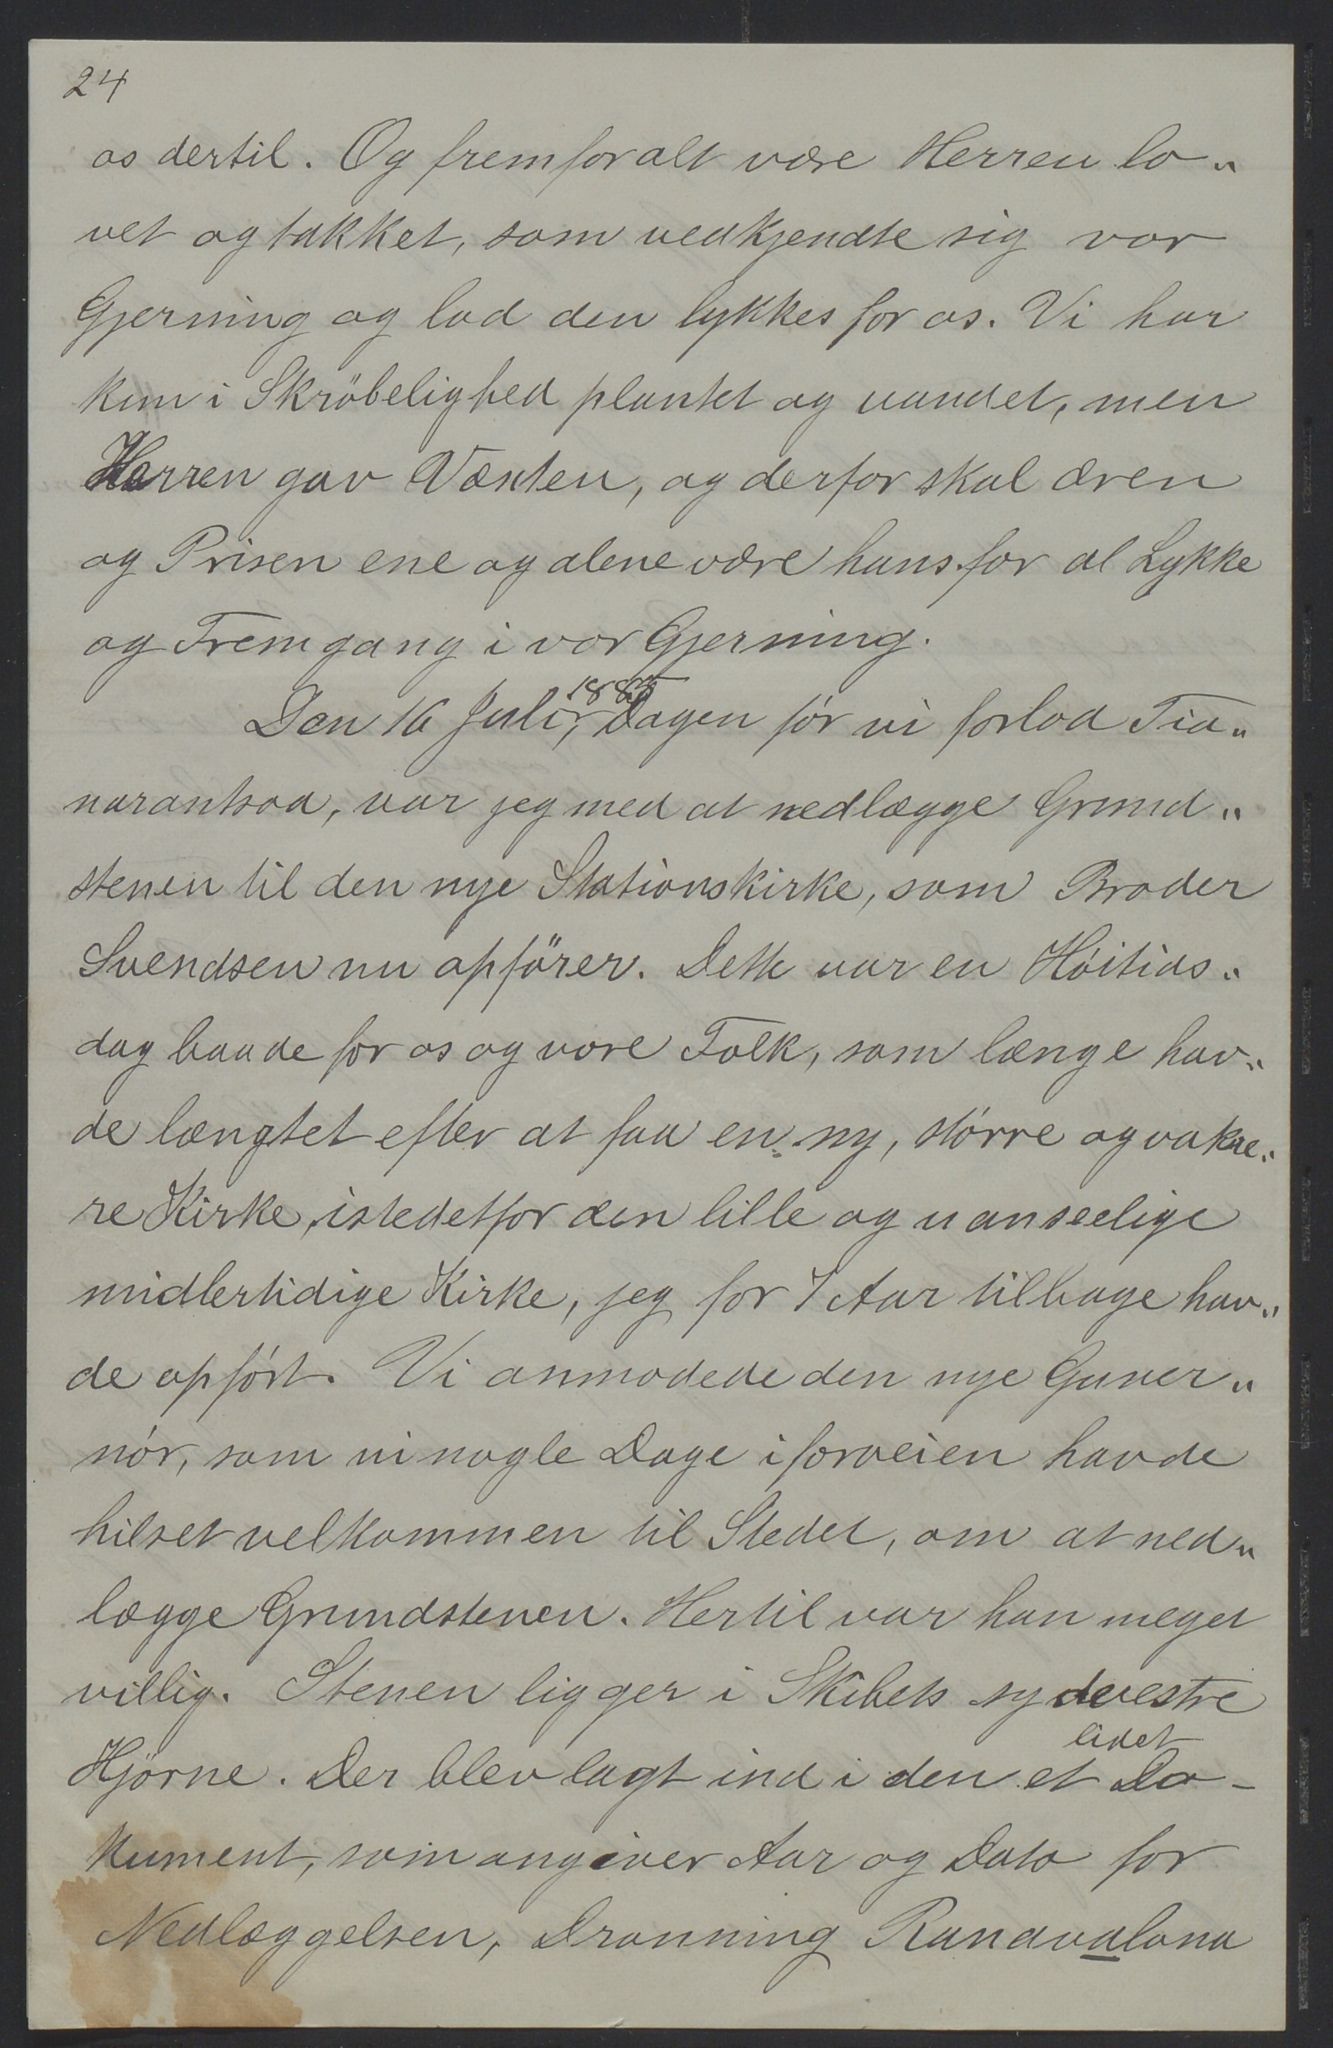 24
os dertil. Og fremforalt være Herren lo„
vet og takket, som vedkjendte sig vor
Gjerning og lod den lykkes for os. Vi har
kun i Skröbelighed plantet og vandet, men
Herren gav Væxten, og derfor skal æren
og Prisen ene og alene være hans for al Lykke
og Fremgang i vor Gjerning.
Den 16 Juli, Dagen før vi forlod Fia„
narantsoa, var jeg med at nedlægge Grund„
stenen til den nye Stationskirke, som Broder
Svendsen nu opfører. Dette var en Høitids„
dag baade for os og vore Folk, som længe hav„
de længtet efter at faa en ny, større og vakre„
re Kirke, istedetfor den lille og uanseelige
midlertidige Kirke, jeg for 7 Aar tilbage hav„
de opført. Vi anmodede den nye Guver„
nør, som vi nogle Dage iforveien havde
hilset velkommen til Stedet, om at ned„
lægge Grundstenen. Hertil var han meget
villig. Stenen ligger i Skibets sydvestre
Hjørne. Der blev lagt ind i den et lidet Do-
kument, som angiver Aar og Dato for
Nedlæggelsen, Dronning Ranavalona